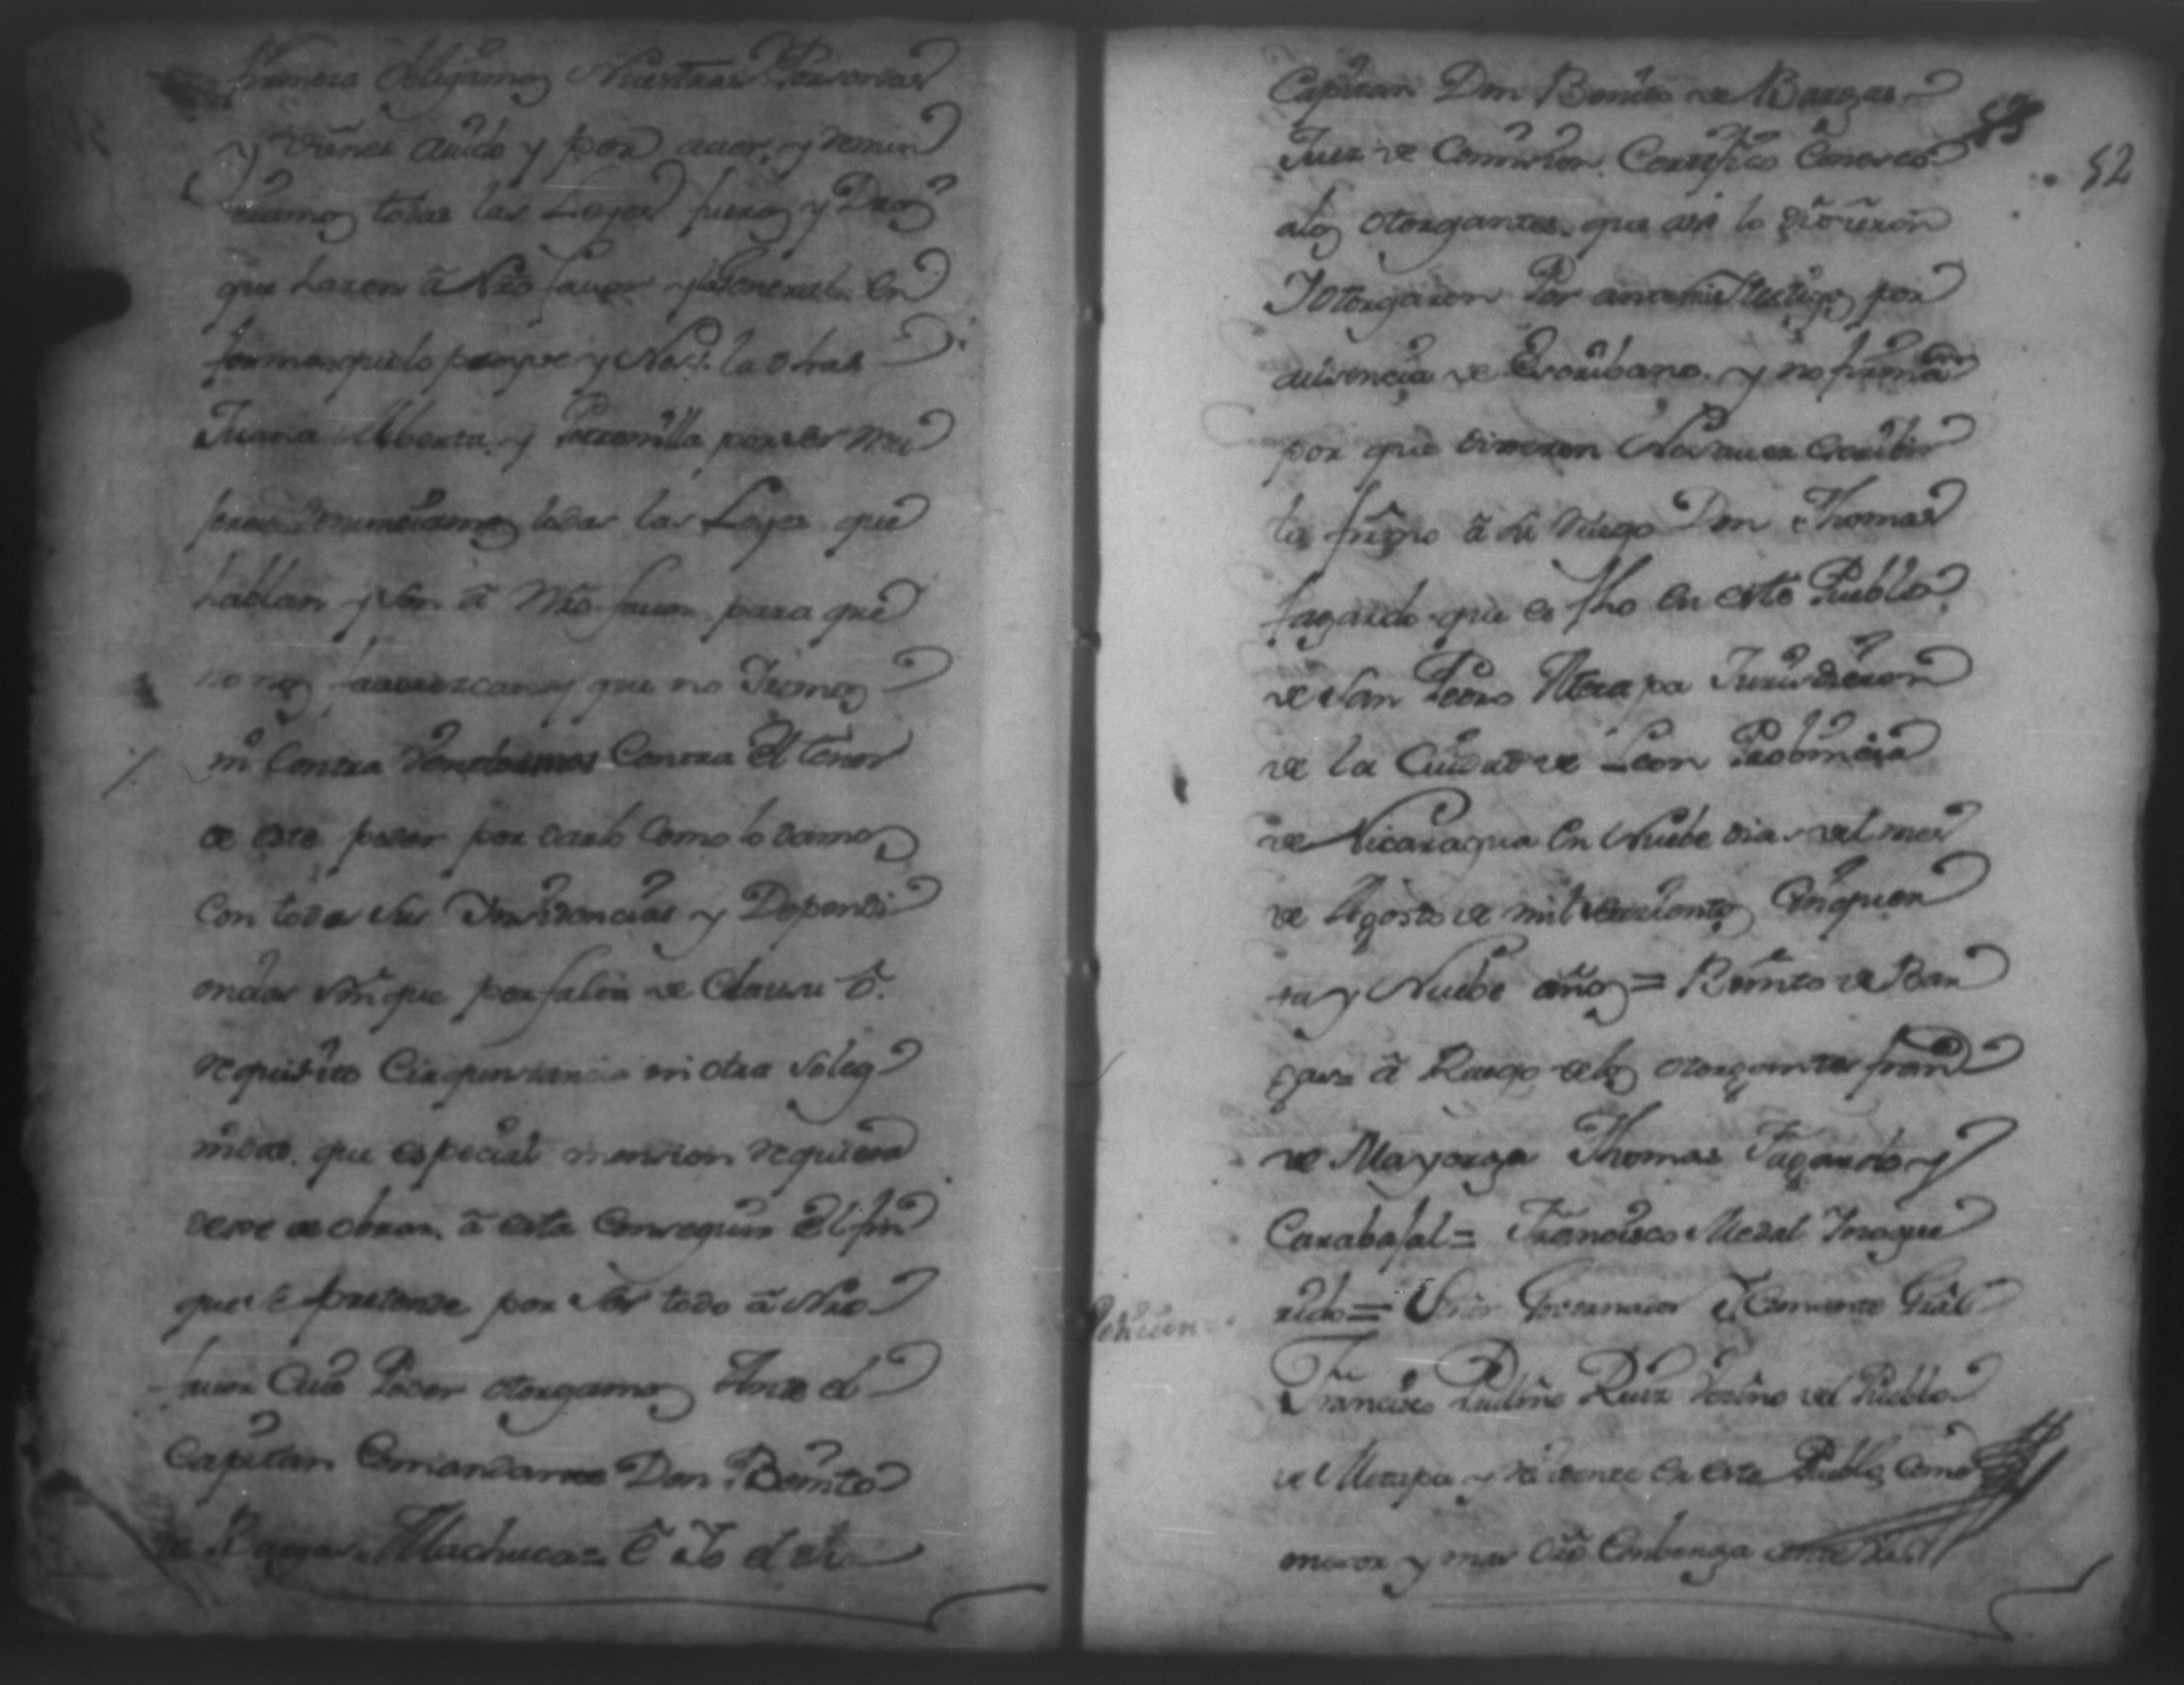 primera obligamos Nuestras Personas
y vienes auido y por auer, y renun
ciamos todas las Leyes fueros y Dros
que hazen â Nro fauor y la General en
forma que lo proive y Nos. las otras
Juana Alberta, y Petronilla por ser mu
feres Renunciamos todas las Leyes que
hablan y son â nro fauor para que
no nos fauorezcan y que no Iremos
ni Contra Vendremos Contra El tenor
de este poder por darlo Como lo damos
Con todas sus Insidencias y Dependi
endas sin que por falta de Clausu ô
requisito Cirqunstancia ni otra Soleg
nidad. que especial mension requiera
dexe de obrar, â esta Conseguir El fin
que se pretende por ser todo â Nro
fauor Cuio Poder otorgamos Ante el
Capitan Comandante Don Benito
de Bargas Machuca= E Io el dho
Capitan Don Benito de Bargas
52
Juez de Comision. Certifico Conosco
a los otorgantes. que asi lo dixeron
I otorgaron Por ante mi y testigos por
ausencia de Escribano. y no firmaron
por que dixeron No sauer Escribir
lo firmo â su Ruego Don Thomas
fagardo que es fho en este Pueblo
de San Pedro Metapa Jurisdicion
de la Ciudad de Leon Probincia
de Nicaragua En Nuebe dias del mes
de Agosto de mil setesientos Cinquen
ta y Nuebe años = Benito de Bar
gas= â Ruego de los otorgantes fran
de Mayorga Thomas Fagardo y
Carabajal = Francisco Medal Ynoque
Peticion.
rido = Señor Governador Theniente Gral
Francisco Paulino Ruiz Vesino del Pueblo
de Metapa y residente en este Pueblo Como
mexor y mas aia Conbenga